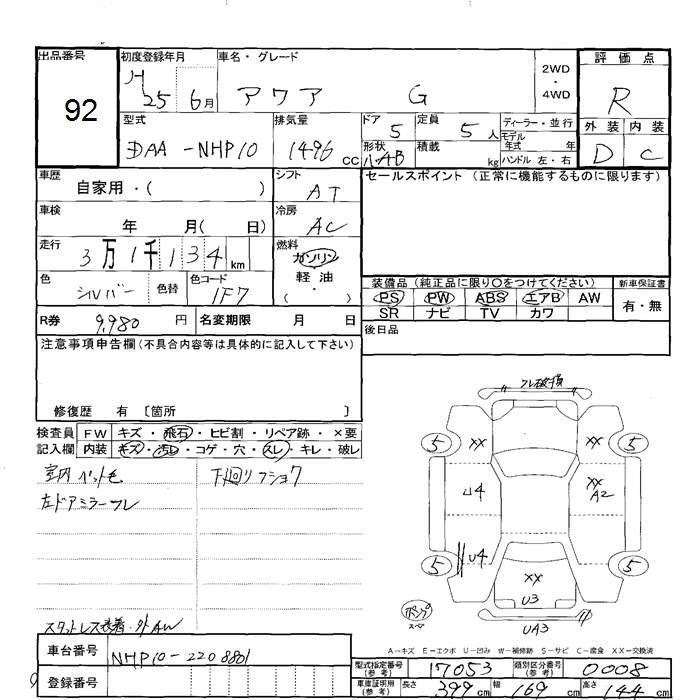 出品番号 92
初度登録年月 H 25 6月
車名・グレード アクア G
2WD・4WD
評価点 R
外装 内装
D C
型式 DAA-NHP10
排気量 1496 cc
ドア 5
形状 ハAB
定員 5人
積載 kg
ディーラー・並行
モデル年式 年
ハンドル 左・右
車歴 自家用・( )
シフト AT
セールスポイント (正常に機能するものに限ります)
車検 年 月( 日)
冷房 AC
走行 3万1千134km
燃料 ガソリン
軽油
・( )
色 シルバー 色替
色コード 1F7
装備品 (純正品に限り○をつけてください)
新車保証書
PS PW ABS エアB AW
有・無
SR ナビ TV カワ
R券 9,980 円
名変期限 月 日
後日品
注意事項申告欄(不具合内容等は具体的に記入して下さい)
修復歴 有 〔箇所 〕
検査員記入欄
FW キズ・飛石・ヒビ割・リペア跡・×要
内装 キズ・汚レ・コゲ・穴・スレ・キレ・破レ
室内ペット毛
下回りフショク
左ドアミラーワレ
スタットレス装着・外AW
フレ破損
5 XX XX 5
U4 XX A2
U4
5 XX 5
U3
UA3
スペ
A-キズ E-エクボ U-凹み W-補修跡 S-サビ C-腐食 XX-交換済
車台番号 NHP10-2208801
登録番号
型式指定番号(参考) 17053
類別区分番号(参考) 0008
車庫証明用(参考) 長さ 399cm 幅 169cm 高さ 144cm